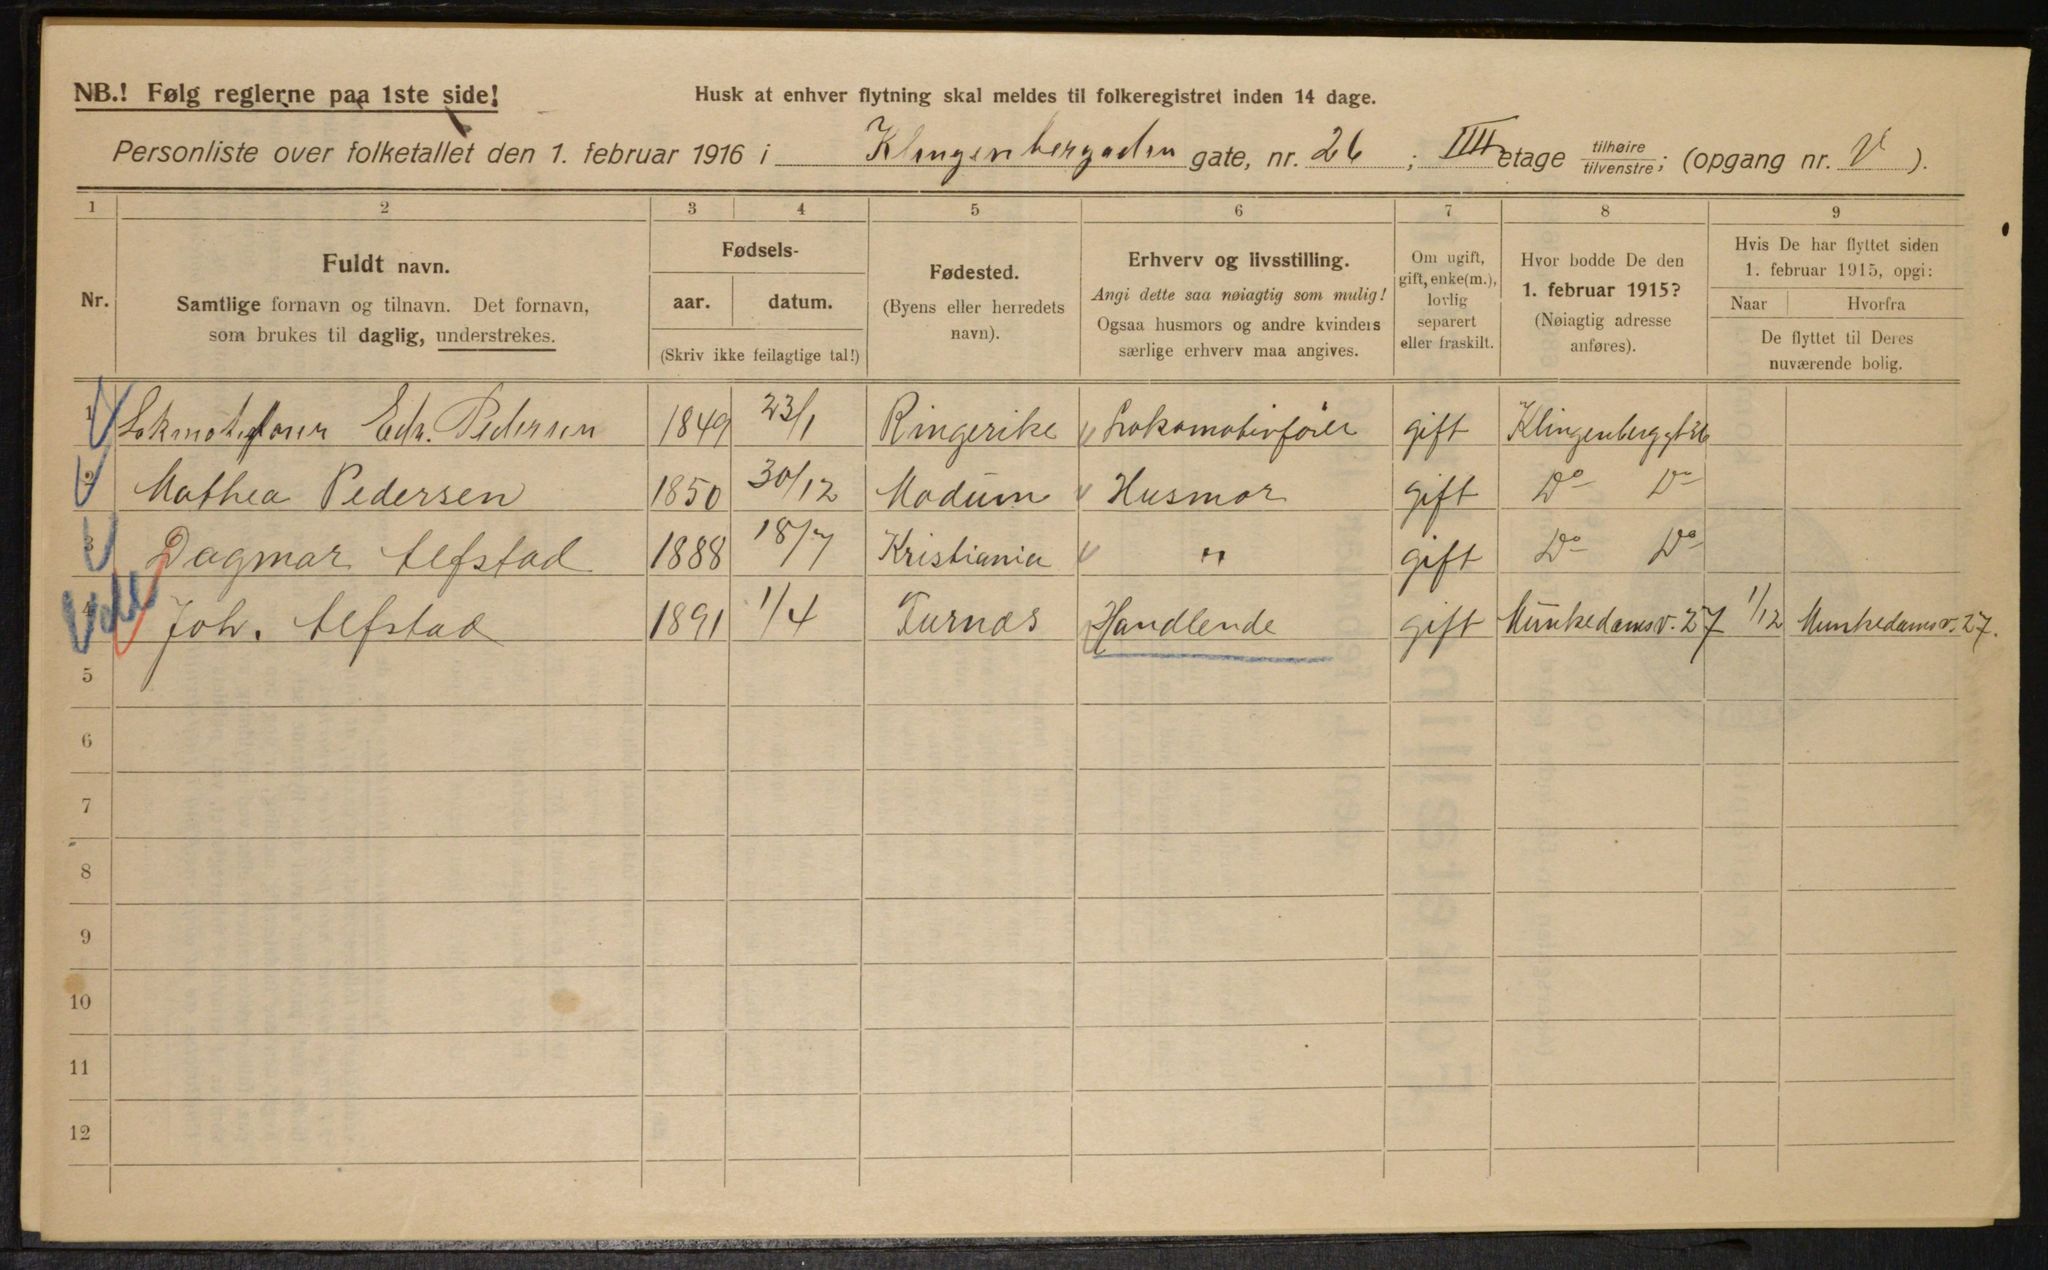 NB.! Følg reglerne paa 1ste side!
Husk at enhver flytning skal meldes til folkeregistret inden 14 dage.
Personliste over folketallet den 1. februar 1916 i Klingenbergaden gate, nr. 26; IIII etage tilhøire/tilvenstre; (opgang nr. V).
1 2 3 4 5 6 7 8 9
Nr.
Fuldt navn.
Samtlige fornavn og tilnavn. Det fornavn,
som brukes til daglig, understrekes.
Fødsels-
aar. datum.
(Skriv ikke feilagtige tal!)
Fødested.
(Byens eller herredets
navn).
Erhverv og livsstilling.
Angi dette saa nøiagtig som mulig!
Ogsaa husmors og andre kvinders
særlige erhverv maa angives.
Om ugift,
gift, enke(m.),
lovlig
separert
eller fraskilt.
Hvor bodde De den
1. februar 1915?
(Nøiagtig adresse
anføres).
Hvis De har flyttet siden
1. februar 1915, opgi:
Naar Hvorfra
De flyttet til Deres
nuværende bolig.
1 Edv. Pedersen 1849 23/1 Ringerike Lokomotivfører gift Klingenberggt 26
2 Mathea Pedersen 1850 30/12 Modum Husmor gift Do Do
3 Dagmar Alfstad 1888 18/7 Kristiania " gift Do Do
4 Joh. Alfstad 1891 1/4 Furnæs Handlende gift Munkedamsv. 27 1/12 Munkedamsv. 27.
5
6
7
8
9
10
11
12